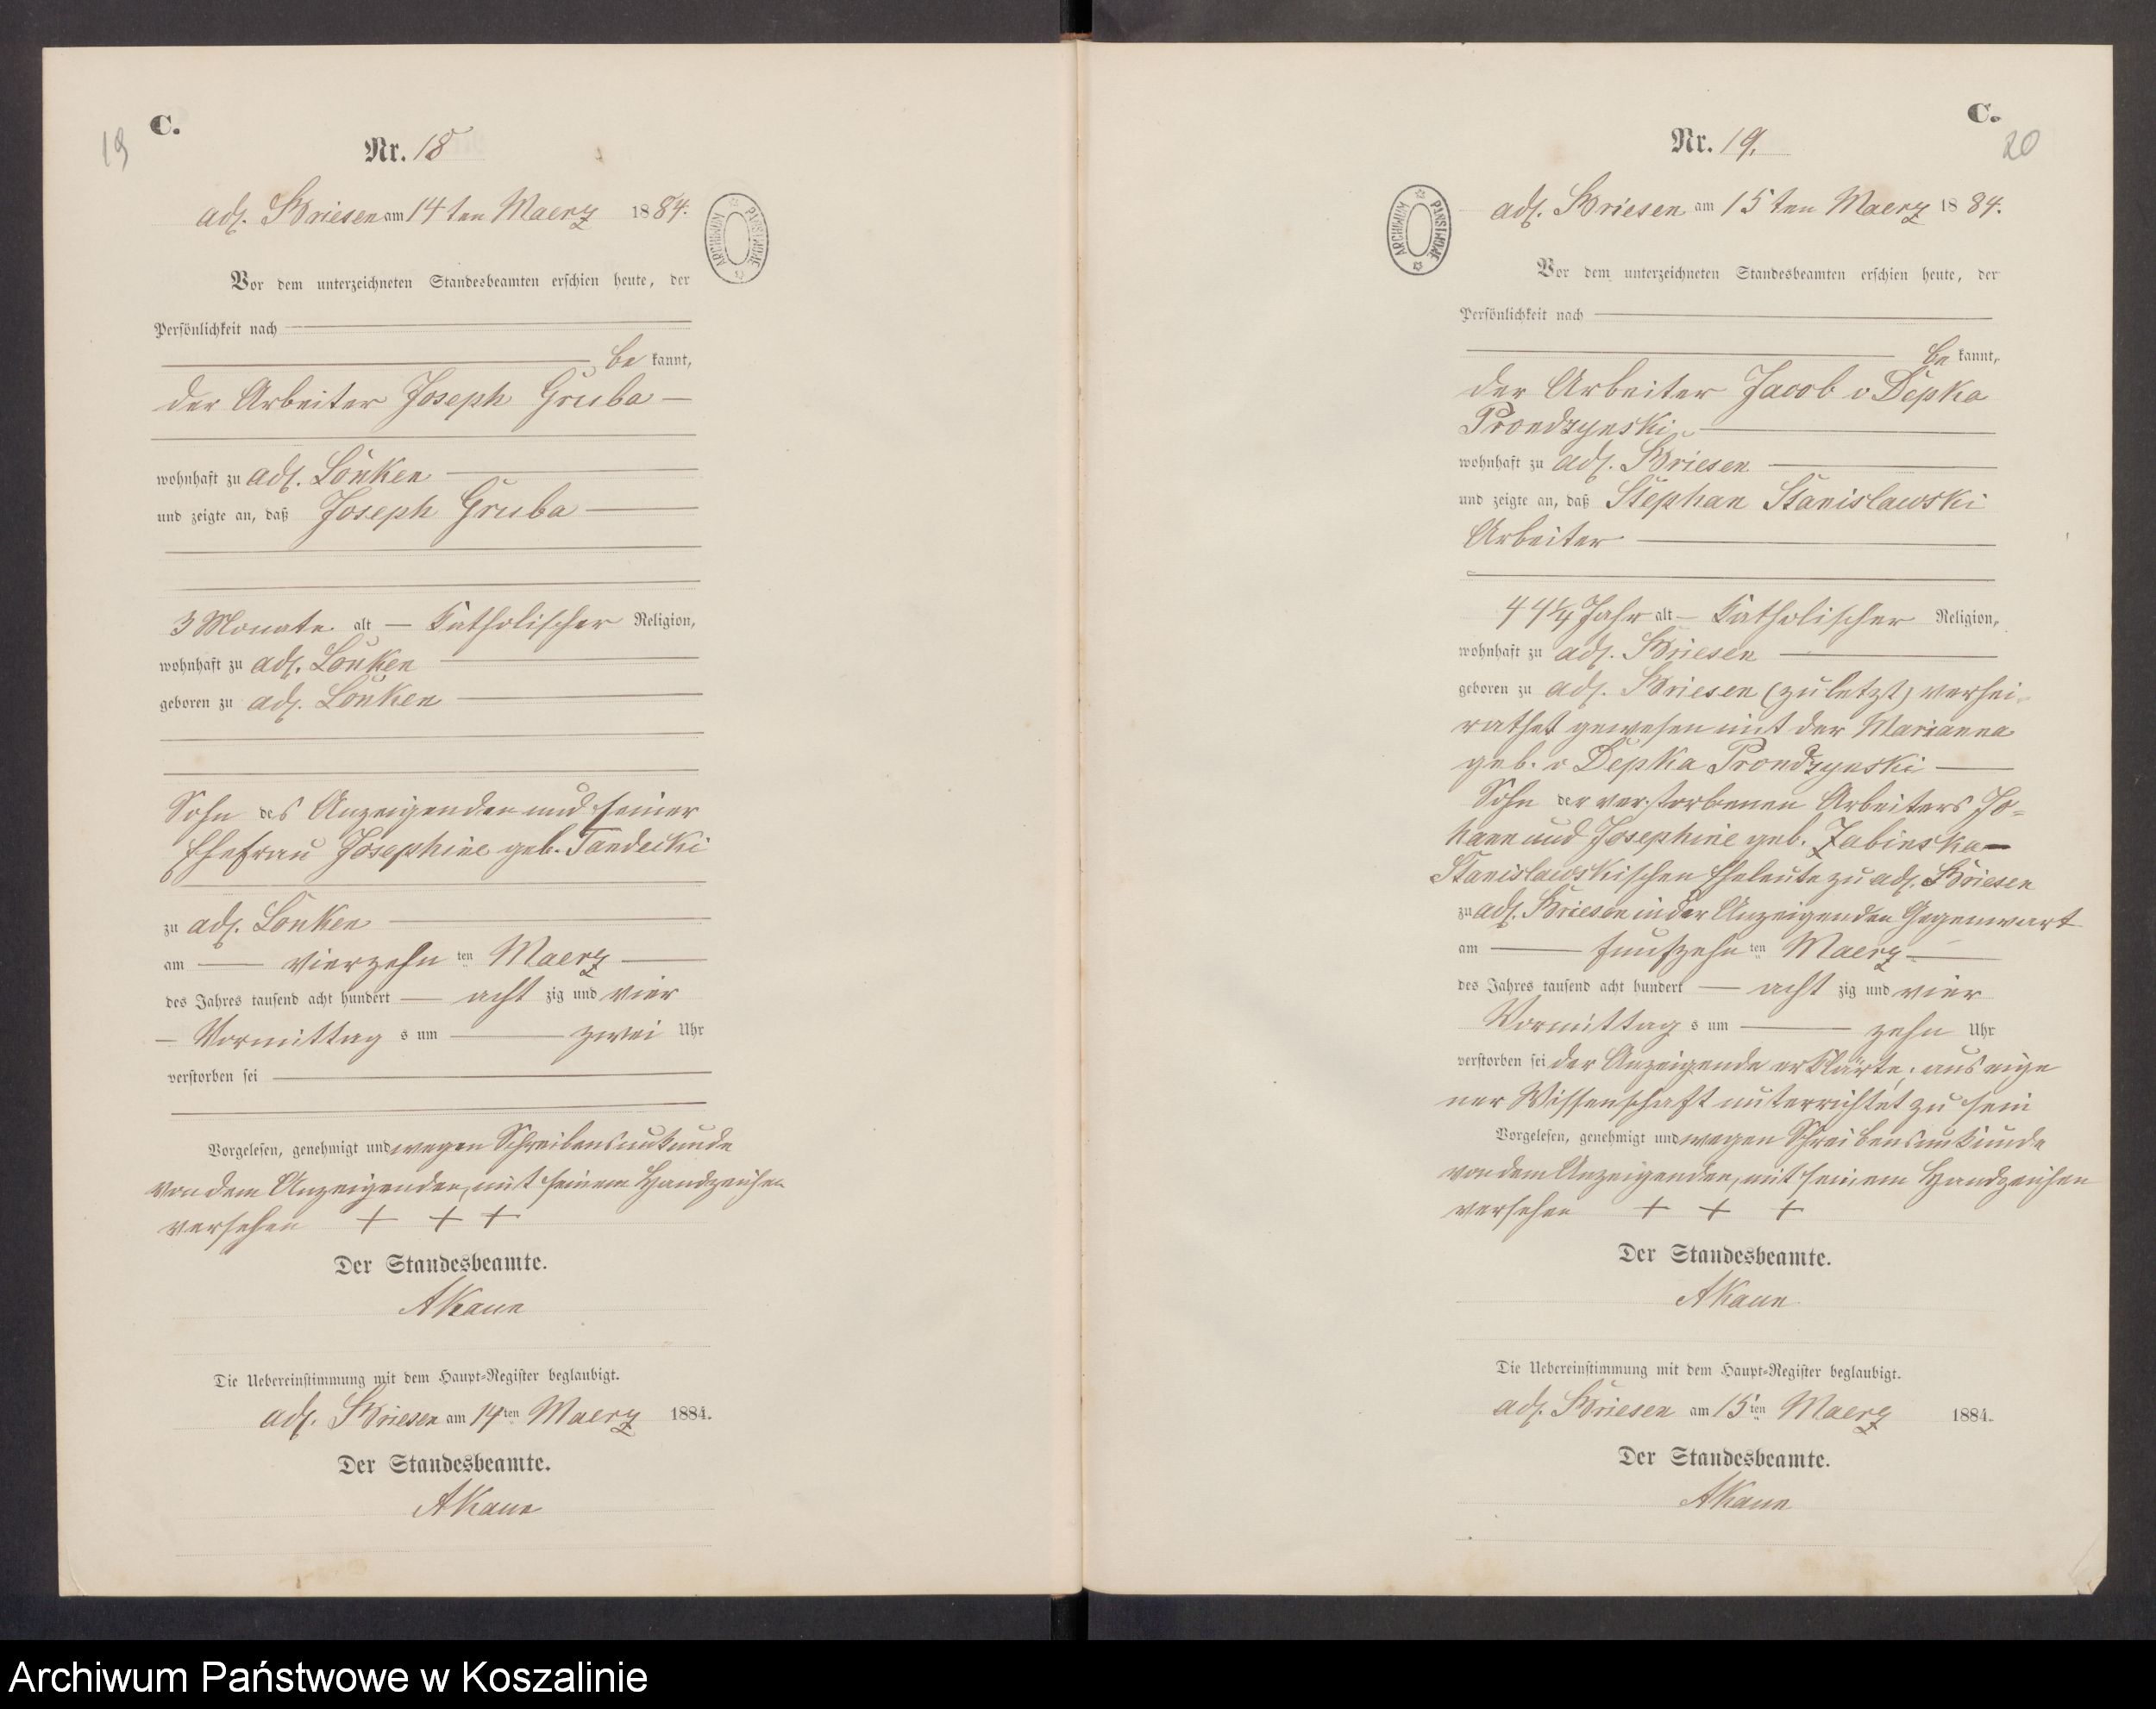 19
C.
Nr. 18
adl. Briesen am 14ten Maerz 1884.
ARCHIWUM PAŃSTWOWE
Vor dem unterzeichneten Standesbeamten erschien heute, der
Persönlichkeit nach
be kannt,
der Arbeiter Joseph Gruba
wohnhaft zu adl. Lonken
und zeigte an, daß Joseph Gruba
3 Monate alt — Katholischer Religion,
wohnhaft zu adl. Lonken
geboren zu adl. Lonken
Sohn des Anzeigenden und seiner
Ehefrau Josephine geb. Tandecki
zu adl. Lonken
am — vierzehn ten Maerz
des Jahres tausend acht hundert — acht zig und vier
Vormittag s um — zwei Uhr
verstorben sei
Vorgelesen, genehmigt und wegen Schreibensunkunde
von dem Anzeigenden, mit seinem Handzeichen
versehen + + +
Der Standesbeamte.
AKaun
Die Uebereinstimmung mit dem Haupt-Register beglaubigt.
adl. Briesen am 14ten Maerz 1884.
Der Standesbeamte.
AKaun
C.
20
Nr. 19.
adl. Briesen am 15ten Maerz 1884.
ARCHIWUM PAŃSTWOWE
Vor dem unterzeichneten Standesbeamten erschien heute, der
Persönlichkeit nach
be kannt,
der Arbeiter Jacob v Depka
Prondzynski
wohnhaft zu adl. Briesen
und zeigte an, daß Stephan Stanislawski
Arbeiter
44 1/4 Jahr alt — Katholischer Religion,
wohnhaft zu adl. Briesen
geboren zu adl. Briesen (zuletzt) verhei-
rathet gewesen mit der Marianna
geb. v Depka Prondzynski
Sohn der verstorbenen Arbeiters Jo-
hann und Josephine geb. Zabinska
Stanislawskischen Eheleute zu adl. Briesen
zu adl. Briesen in der Anzeigenden Gegenwart
am — funfzehn ten Maerz
des Jahres tausend acht hundert — acht zig und vier
Vormittag s um — zehn Uhr
verstorben sei der Anzeigende erklärte, aus eige
ner Wissenschaft unterrichtet zu sein
Vorgelesen, genehmigt und wegen Schreibensunkunde
von dem Anzeigenden, mit seinem Handzeichen
versehen + + +
Der Standesbeamte.
AKaun
Die Uebereinstimmung mit dem Haupt-Register beglaubigt.
adl. Briesen am 15ten Maerz 1884.
Der Standesbeamte.
AKaun
Archiwum Państwowe w Koszalinie